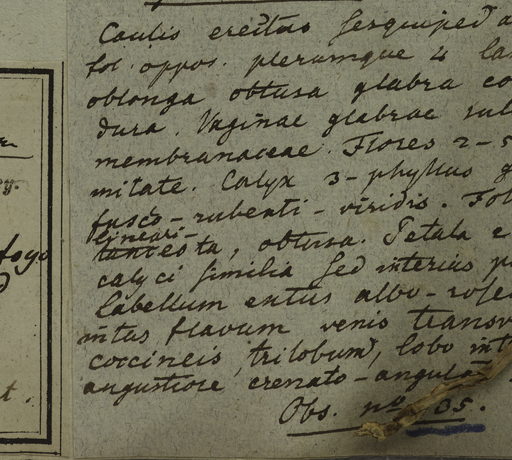 Caulis erectus sesquiped
fol. oppos. plerumque 4 lan
oblonga obtusa glabra co
dura. Vaginae glabrae sub
membranaceae. Flores 2-5
mitate. Calyx 3-phyllus g
fusco-rubenti-viridis. Fol
lineari-
lanceota, obtusa. Petala e
calyci similia sed interius p
labellum entus albo-rose
intus flavum venis transv
coccineis, trilobum, lobo int
angustiore crenato-angulat
Obs. no. 105.